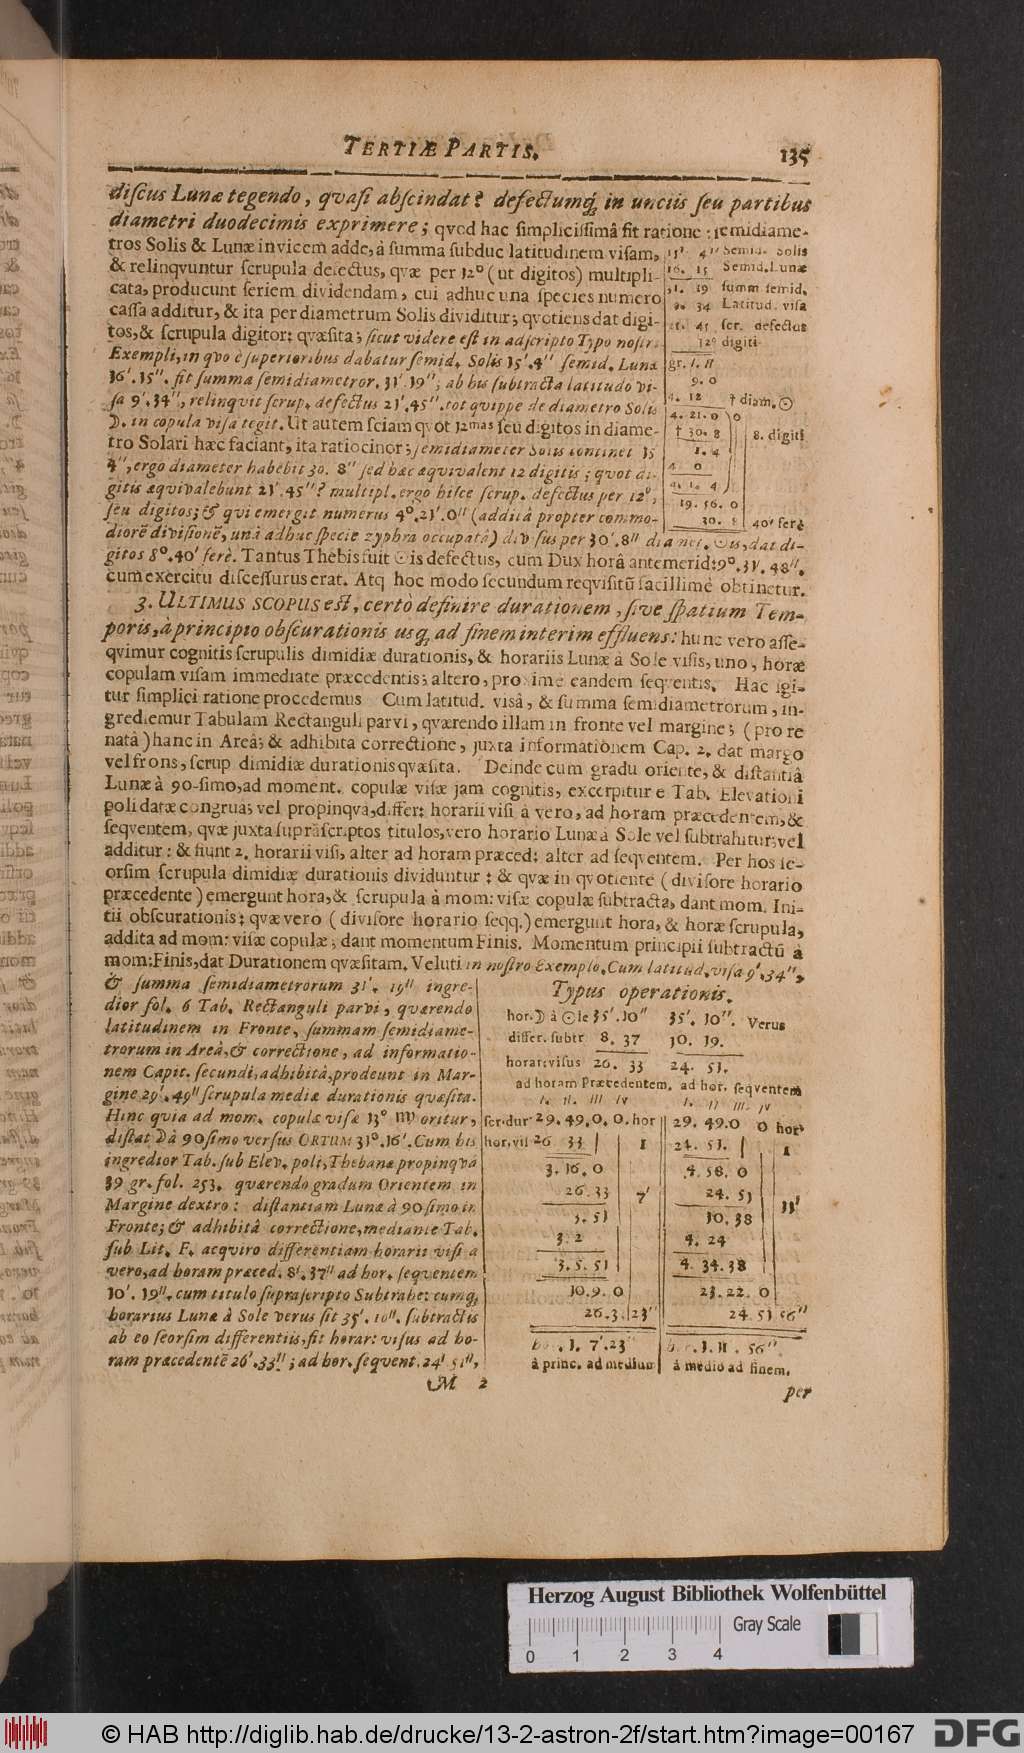 TERTIÆ PARTIS. 135
discus Lunæ tegendo, qvasi abscindat? defectumq; in unciis seu partibus
diametri duodecimis exprimere; qvod hac simplicissimâ fit ratione: semidiame-
tros Solis & Lunæ invicem adde, à summa subduc latitudinem visam,
& relinqvuntur scrupula defectus, qvæ per 12° (ut digitos) multipli-
cata, producunt seriem dividendam, cui adhuc una species numero
cassa additur, & ita per diametrum Solis dividitur; qvotiens dat digi-
tos, & scrupula digitor: qvæsita; sicut videre est in adscripto Typo nostri
Exempli, in qvo è superioribus dabatur semid. Solis 15'.4" semid. Lunæ
16'.15". fit summa semidiametror. 31'.19"; ab his subtracta latitudo vi-
sa 9'.34", relinqvit scrup. defectus 21'.45". tot qvippe de diametro Solis
☽. in copula visa tegit. Ut autem sciam qvot 12mas seu digitos in diame-
tro Solari hæc faciant, ita ratiocinor; semidiameter Solis continet 15
4", ergo diameter habebit 30. 8" sed hæc æqvivalent 12 digitis; qvot di-
gitis æqvivalebunt 21'.45"? multipl. ergo hisce scrup. defectus per 12°,
seu digitos; & qui emergit numerus 4°.21'.0" (additâ propter commo-
diorē divisionē, unâ adhuc specie zyphra occupatâ) divisus per 30'.8" diamet. ☉is, dat di-
gitos 8°.40' ferè. Tantus Thebis fuit ☉is defectus, cum Dux horâ antemerid: 9°.31'.48".
cum exercitu discessurus erat. Atq; hoc modo secundum reqvisitū facillimè obtinetur.
15' 4" Semid. Solis
16. 15 Semid. Lunæ
31. 19 summ semid.
9. 34 Latitud. visa
21. 45 scr. defectus
12° digiti
gr. I. II
9. 0
4. 12 † diam. ☉
4. 21. 0 0
† 30. 8 8. digiti
1. 4
4 0
4. 1. 4
19. 56. 0
30. 8 40' ferè
3. ULTIMUS SCOPUS est, certò definire durationem, sive spatium Tem-
poris, à principio obscurationis usq; ad finem interim effluens: hunc vero asse-
qvimur cognitis scrupulis dimidiæ durationis, & horariis Lunæ à Sole visis, uno, horæ
copulam visam immediate præcedentis; altero, proxime eandem seqventis. Hac igi-
tur simplici ratione procedemus Cum latitud. visâ, & summa semidiametrorum, in-
grediemur Tabulam Rectanguli parvi, qværendo illam in fronte vel margine; (pro re
natâ) hanc in Areâ; & adhibita correctione, juxta informationem Cap. 2. dat margo
vel frons, scrup dimidiæ durationis qvæsita. Deinde cum gradu oriente, & distantiâ
Lunæ à 90-simo, ad moment. copulæ visæ jam cognitis, excerpitur e Tab. Elevationi
poli datæ congrua; vel propinqvâ, differ: horarii visi â vero, ad horam præcedentem, &
seqventem, qvæ juxta suprâscriptos titulos, vero horario Lunæ à Sole vel subtrahitur; vel
additur: & fiunt 2. horarii visi, alter ad horam præced: alter ad seqventem. Per hos se-
orsim scrupula dimidiæ durationis dividuntur: & qvæ in qvotiente (divisore horario
præcedente) emergunt hora, & scrupula à mom: visæ copulæ subtracta, dant mom. Ini-
tii obscurationis; qvæ vero (divisore horario seqq.) emergunt hora, & horæ scrupula,
addita ad mom: visæ copulæ; dant momentum Finis. Momentum principii subtractū à
mom: Finis, dat Durationem qvæsitam. Veluti in nostro Exemplo. Cum latitud. visa 9'.34",
& summa semidiametrorum 31'. 19" ingre-
dior fol. 6 Tab. Rectanguli parvi, qværendo
latitudinem in Fronte, summam semidiame-
trorum in Areâ, & correctione, ad informatio-
nem Capit. secundi, adhibitâ, prodeunt in Mar-
gine 29'.49" scrupula mediæ durationis qvæsita.
Hinc quia ad mom. copulæ visæ 13° ♍ oritur,
distat ☽ à 90simo versus ORTUM 31°.16'. Cum his
ingredior Tab. sub Elev. poli, Thebanæ propinqvâ
39 gr. fol. 253. qværendo gradum Orientem in
Margine dextro: distantiam Lunæ à 90simo in
Fronte; & adhibitâ correctione, mediante Tab.
sub Lit. F. acqviro differentiam horarii visi a
vero, ad horam præced. 8'.37" ad hor. seqventem
10'. 19". cum titulo suprascripto Subtrahe: cumq;
horarius Lunæ à Sole verus sit 35'. 10". subtractis
ab eo seorsim differentiis, fit horar: visus ad ho-
ram præcedentē 26'.33"; ad hor. seqvent. 24' 51",
Typus operationis.
hor. ☽ à ☉le 35'.10" 35'. 10". Verus
differ. subtr 8. 37 10. 19.
horar: visus 26. 33 24. 51.
ad horam Præcedentem. ad hor. seqventem
I. II. III IV I. II III. IV
scr. dur 29. 49. 0. 0. hor 29. 49. 0 0 hor
hor. vis 26 33 1 24. 51. 1
3. 16. 0 4. 58. 0
26. 33 7' 24. 51 11'
3. 51 10. 38
3. 2 4. 24
3. 5. 51 4. 34. 38
10. 9. 0 23. 22. 0
26. 3. 23" 24. 51 56"
ho. 1. 7'.23 hor. 1. 11. 56".
à princ. ad medium à medio ad finem.
M 2
per
Herzog August Bibliothek Wolfenbüttel
Gray Scale
0 1 2 3 4
© HAB http://diglib.hab.de/drucke/13-2-astron-2f/start.htm?image=00167 DFG